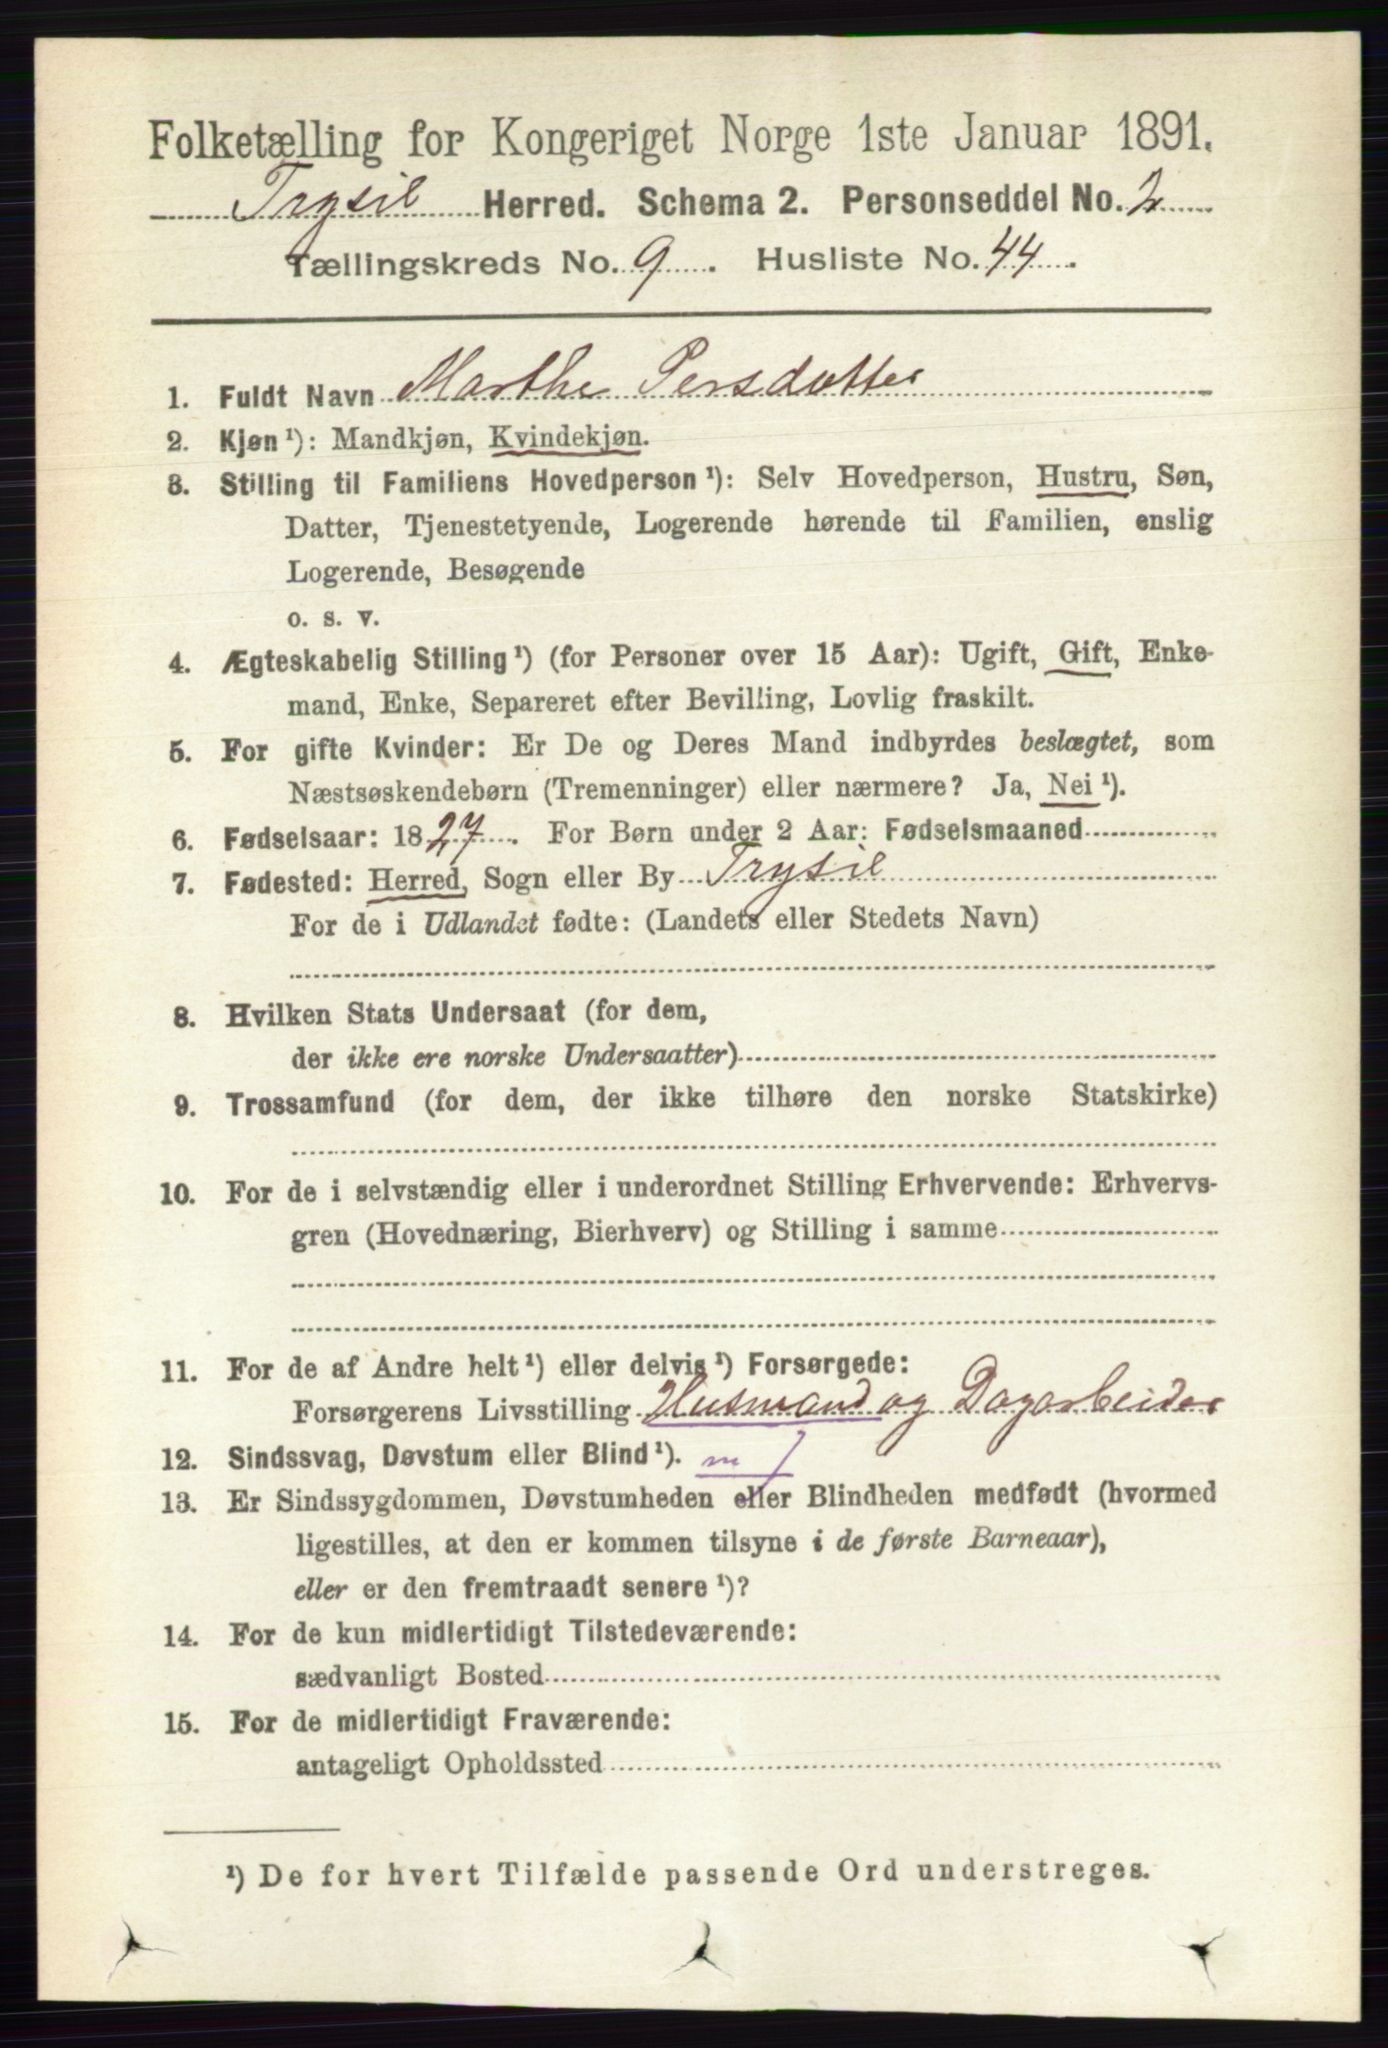 Folketælling for Kongeriget Norge 1ste Januar 1891.
Trysil Herred. Schema 2. Personseddel No. 2
Tællingskreds No. 9. Husliste No. 44.
1. Fuldt Navn Marthe Persdatter
2. Kjøn ¹): Mandkjøn, Kvindekjøn.
3. Stilling til Familiens Hovedperson ¹): Selv Hovedperson, Hustru, Søn,
Datter, Tjenestetyende, Logerende hørende til Familien, enslig
Logerende, Besøgende
o. s. v.
4. Ægteskabelig Stilling ¹) (for Personer over 15 Aar): Ugift, Gift, Enke-
mand, Enke, Separeret efter Bevilling, Lovlig fraskilt.
5. For gifte Kvinder: Er De og Deres Mand indbyrdes beslægtet, som
Næstsøskendebørn (Tremenninger) eller nærmere? Ja, Nei ¹).
6. Fødselsaar: 1827. For Børn under 2 Aar: Fødselsmaaned
7. Fødested: Herred, Sogn eller By Trysil
For de i Udlandet fødte: (Landets eller Stedets Navn)
8. Hvilken Stats Undersaat (for dem,
der ikke ere norske Undersaatter)
9. Trossamfund (for dem, der ikke tilhøre den norske Statskirke)
10. For de i selvstændig eller i underordnet Stilling Erhvervende: Erhvervs-
gren (Hovednæring, Bierhverv) og Stilling i samme
11. For de af Andre helt ¹) eller delvis ¹) Forsørgede:
Forsørgerens Livsstilling Husmand og Dagarbeider
12. Sindssvag, Døvstum eller Blind ¹). m
13. Er Sindssygdommen, Døvstumheden eller Blindheden medfødt (hvormed
ligestilles, at den er kommen tilsyne i de første Barneaar),
eller er den fremtraadt senere ¹)?
14. For de kun midlertidigt Tilstedeværende:
sædvanligt Bosted
15. For de midlertidigt Fraværende:
antageligt Opholdssted
¹) De for hvert Tilfælde passende Ord understreges.